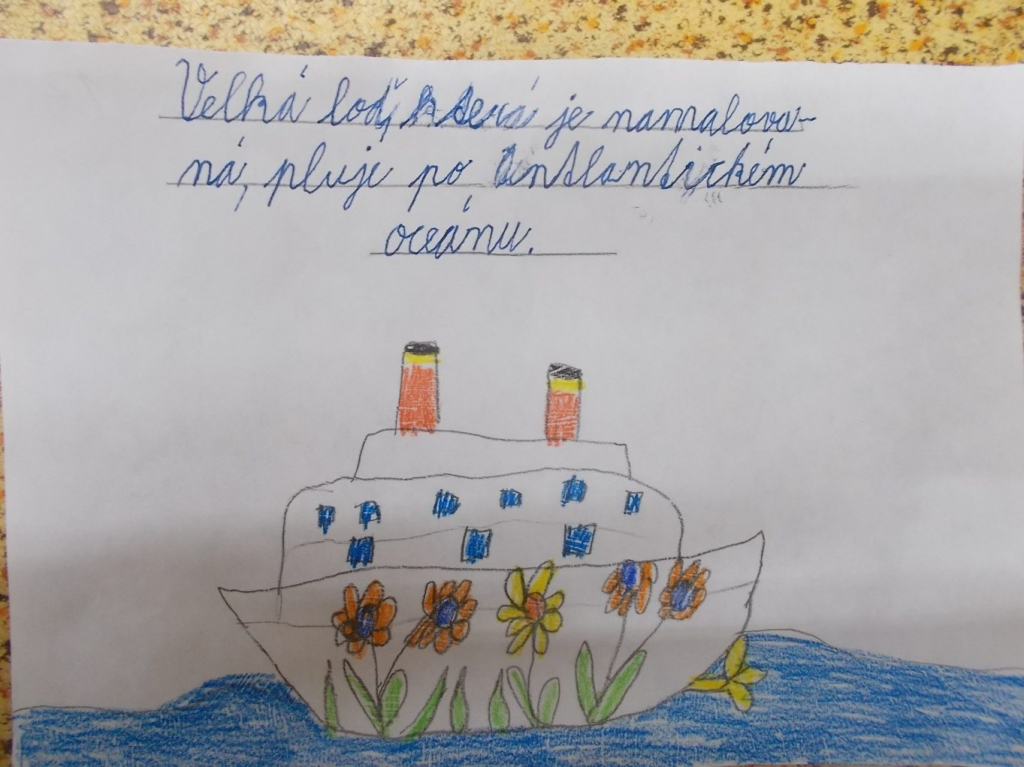 Velká loď, která je namalova-
ná, pluje po Antlantickém
oceánu.